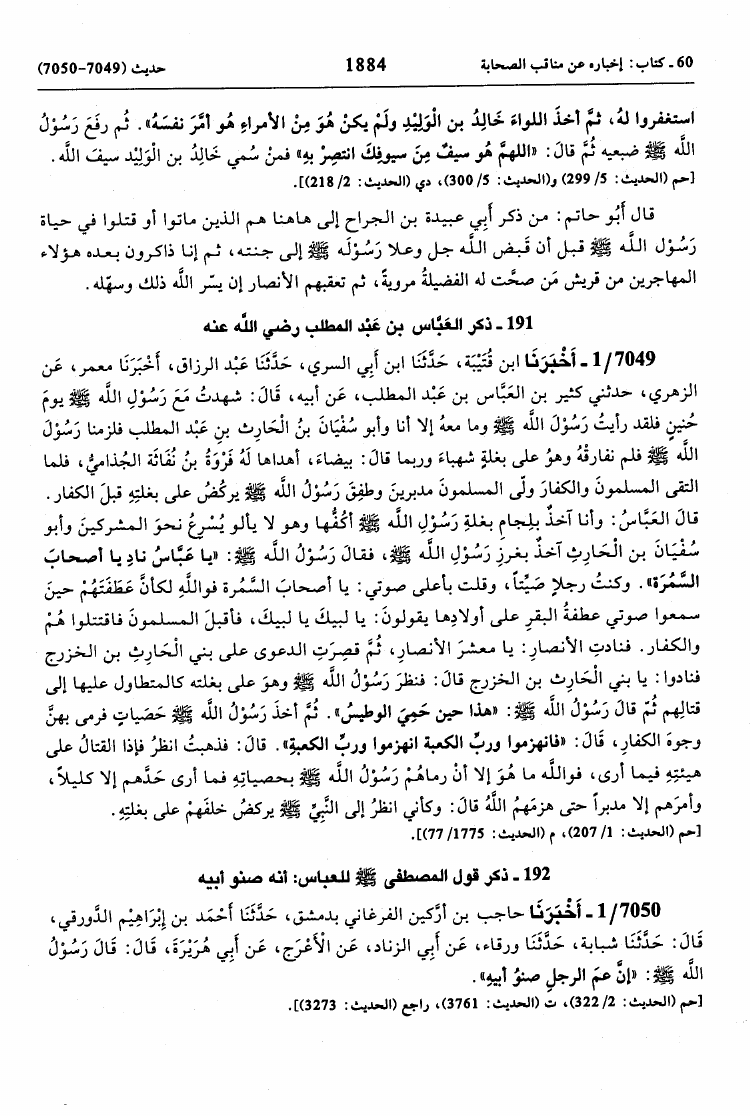 60 ـ كتاب: إخباره عن مناقب الصحابة 1884 حديث (7049-7050)
استغفروا لهُ، ثمَّ أخذَ اللواءَ خَالِدُ بن الْوَلِيْدِ ولَمْ يكنْ هُوَ مِنْ الأمراءِ هُو أمَّرَ نفسَهُ». ثُم رفَعَ رَسُوْلُ
اللَّه ﷺ ضبعيه ثُمَّ قالَ: «اللهمَّ هُو سيفٌ مِنَ سيوفِكَ انتصِرْ بهِ» فمنْ سُمي خَالِدُ بن الْوَلِيْد سيفَ اللَّه.
[حم (الحديث: 5/ 299) و(الحديث: 5/ 300)، دي (الحديث: 2/ 218)].
قال أَبُو حاتم: من ذكر أَبِي عبيدة بن الجراح إلى هاهنا هم الذين ماتوا أو قتلوا في حياة
رَسُوْل اللَّه ﷺ قبل أن قَبض اللَّه جل وعلا رَسُوْلَه ﷺ إلى جنته، ثم إنا ذاكرون بعده هؤلاء
المهاجرين من قريش مَن صحَّت له الفضيلةُ مرويةً، ثم تعقبهم الأنصار إن يسّر اللَّه ذلك وسهّله.
191 ـ ذكر العَبَّاس بن عَبْد المطلب رضي اللَّه عنه
1/7049 ـ أَخْبَرَنَا ابن قُتَيْبَة، حَدَّثَنَا ابن أَبِي السري، حَدَّثَنَا عَبْد الرزاق، أَخْبَرَنَا معمر، عَن
الزهري، حدثني كثير بن العَبَّاس بن عَبْد المطلب، عَن أبيه، قَالَ: شهدتُ مَعَ رَسُوْلِ اللَّهِ ﷺ يومَ
حُنينٍ فلقد رأيتُ رَسُوْلَ اللَّه ﷺ وما معهُ إلا أنا وأبو سُفْيَانَ بنُ الْحَارِث بنِ عَبْد المطلب فلزمنا رَسُوْلَ
اللَّه ﷺ فلم نفارقْهُ وهوُ على بغلةٍ شهباءَ وربما قالَ: بيضاءَ، أهداها لهُ فَرْوَةُ بنُ نُفَاثَة الجُذاميُّ، فلما
التقى المسلمونَ والكفارَ ولّى المسلمونَ مدبرينَ وطفِقَ رَسُوْلُ اللَّه ﷺ يركُضُ على بغلتِهِ قبلَ الكفار.
قالَ العَبَّاسُ: وأنا آخذٌ بلِجامِ بغلةِ رَسُوْلِ اللَّه ﷺ أكُفُّها وهو لا يألو يُسْرِعُ نحوَ المشركينَ وأبو
سُفْيَانَ بن الْحَارِثِ آخذٌ بغرزِ رَسُوْلِ اللَّه ﷺ، فقالَ رَسُوْلُ اللَّه ﷺ: «يا عَبَّاسُ نادِ يا أصحابَ
السَّمُرَة». وكنتُ رجلاٍ صَيِّتاً، وقلت بأعلى صوتي: يا أصحابَ السَّمُرة فواللَّهِ لكأنَّ عَطَفَتَهُمْ حينَ
سمعوا صوتي عطفةُ البقرِ على أولادِها يقولونَ: يا لبيكَ يا لبيكَ، فأقبلَ المسلمونَ فاقتتلوا هُمْ
والكفار. فنادتِ الأنصار: يا معشرَ الأنصارِ، ثُمَّ قصِرَتِ الدعوى على بني الْحَارِثِ بن الخزرج
فنادوا: يا بني الْحَارِثِ بن الخزرج قالَ: فنظَرَ رَسُوْلُ اللَّه ﷺ وهوَ على بغلته كالمتطاول عليها إلى
قتالِهم ثُمّ قالَ رَسُوْلُ اللَّه ﷺ: «هذا حين حَمِيَ الوطيسُ». ثُمَّ أخذَ رَسُوْلُ اللَّه ﷺ حَصَياتٍ فرمى بهنَّ
وجوهَ الكفارِ، قَالَ: «فانهزموا وربِّ الكعبة انهزموا وربِّ الكعبةِ». قالَ: فذهبتُ انظرُ فإذا القتالُ على
هيئتِهِ فيما أرى، فواللَّه ما هُوَ إلا أنْ رماهُمْ رَسُوْلُ اللَّه ﷺ بحصياتِهِ فما أرى حَدَّهم إلا كليلاً،
وأمرَهم إلا مدبراً حتى هزمَهمُ اللَّهُ قالَ: وكأني انظرُ إلى النَّبيِّ ﷺ يركضُ خلفَهمْ على بغلتِهِ.
[حم (الحديث: 1/ 207)، م (الحديث: 1775/ 77)].
192 ـ ذكر قول المصطفى ﷺ للعباس: أنه صنو أبيه
1/7050 ـ أَخْبَرَنَا حاجب بن أرَّكين الفرغاني بدمشق، حَدَّثَنَا أَحْمَد بن إبْرَاهِيْم الدَّورقي،
قَالَ: حَدَّثَنَا شبابة، حَدَّثَنَا ورقاء، عَن أَبِي الزناد، عَن الْأَعْرَج، عَن أَبِي هُرَيْرَةَ، قَالَ: قَالَ رَسُوْلُ
اللَّه ﷺ: «إنَّ عمَ الرجلِ صنوُ أبيهِ».
[حم (الحديث: 2/ 322)، ت (الحديث: 3761)، راجع (الحديث: 3273)].